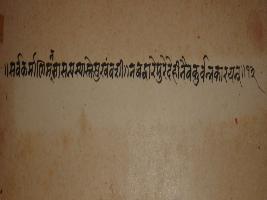 ॥सर्वकर्माणिमनसासंन्यस्यास्तेसुखंवशी॥नवद्वारेपुरेदेहीनैवकुर्वन्नकारयन्॥१३